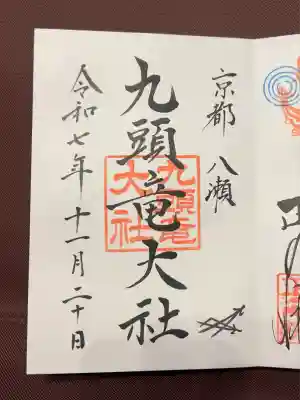 京都 八瀬
九頭竜大社
九頭竜
大社
令和七年十一月二十日